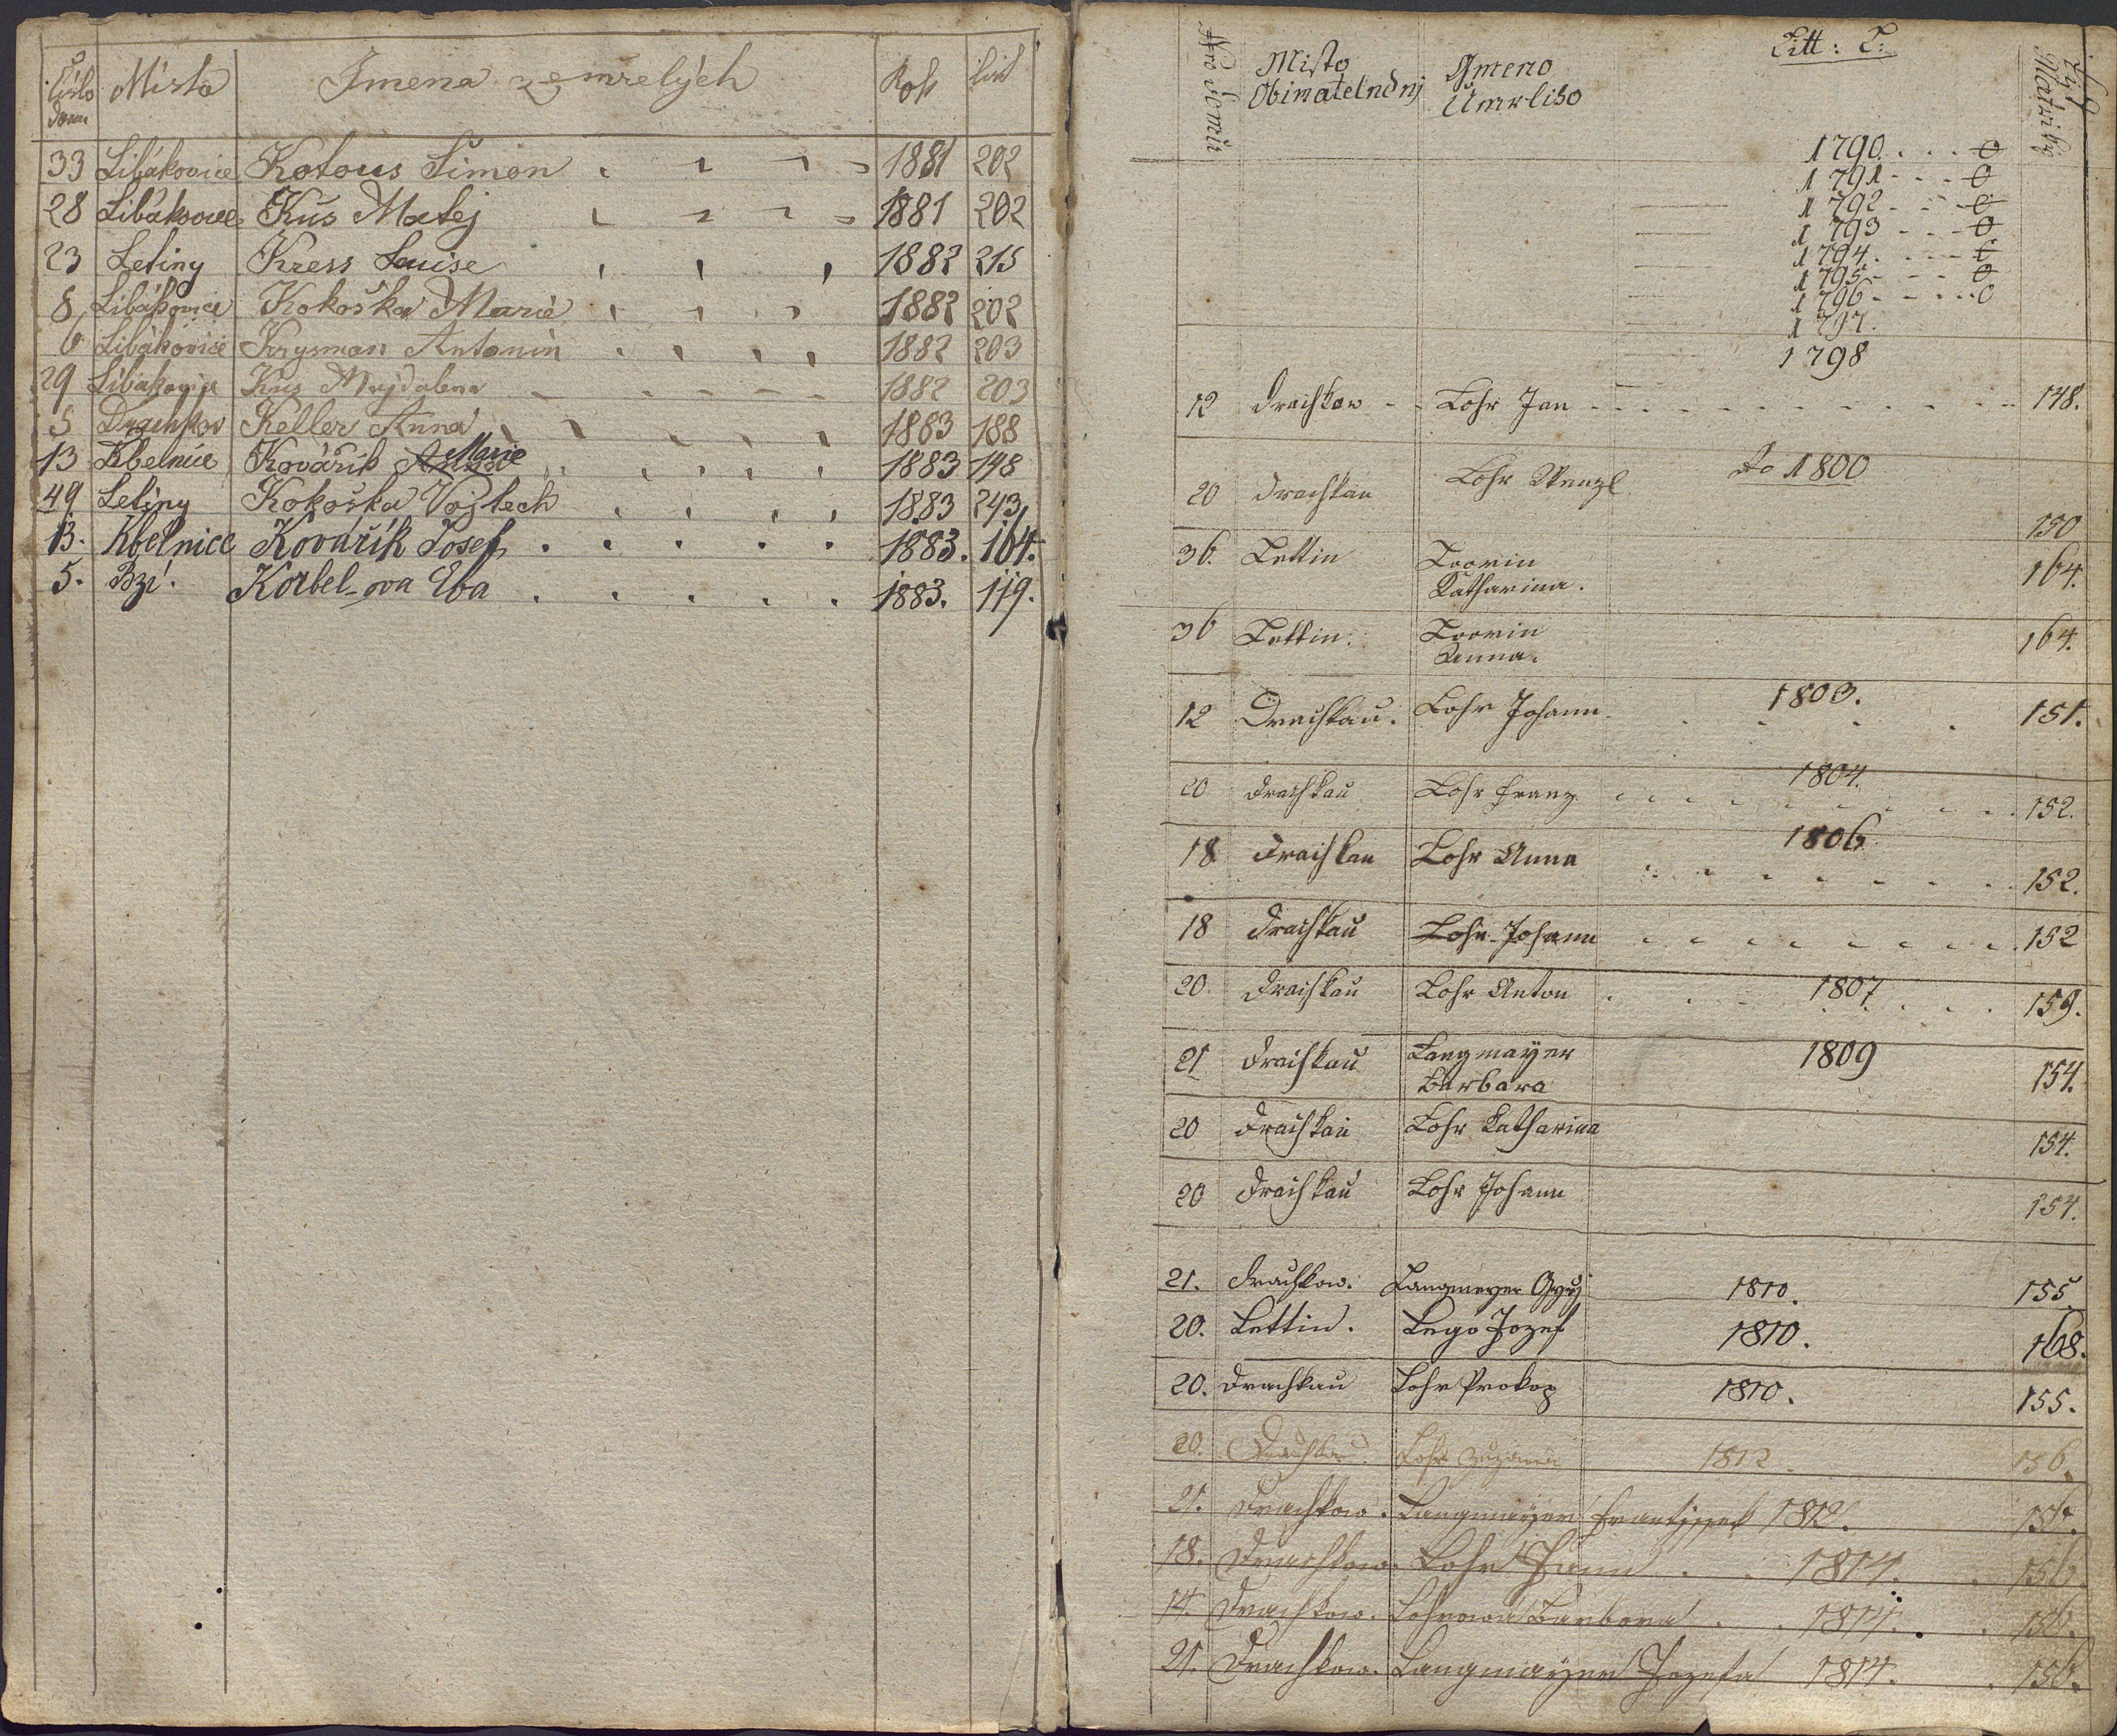 Číslo domu Místo Jmena zemřelých Rok list
33 Libákovice Kotous Šimon 1881 202
28 Libákovice Kůs Matěj 1881 202
23 Letiny Kress Louise 1882 215
8 Libákovice Kokoška Marie 1882 202
6 Libákovice Krysman Antonín 1882 203
29 Libákovice Kus Majdalena 1882 203
5 Drachkov Keller Anna 1883 188
13 Kbelnice Kovářík Marie 1883 148
49 Letiny Kokoška Vojtech 1883 243
13. Kbelnice Kovářík Josef 1883. 164.
5. Bzí. Korbel-ova Eva 1883. 119.
Litt: L:
Nro domu Misto Obiwatelnosti Gmeno Umrliho List Matriky
1790 . . . 0
1791 - - - 0
1792 - - - 0
1793 - - - 0
1794 . - - 0
1795 - - - 0
1796 - - . . 0
1797.
1798
12 Drachkow - - Lohr Jan 148.
Ao 1800
20 Drachkau Lohr Wenzl 150
36. Lettin Loorin Katharina. 164.
36 Lettin. Loorin Anna. 164.
1803.
12 Drachkau. Lohr Johann 151.
1804.
20 Drachkau Lohr Franz 152.
1806
18 Drachkau Lohr Anna 152.
18 Drachkau Lohr Johann 152
20. Drachkau Lohr Anton 1807 159.
21 Drachkau Langmayer Barbara 1809 154.
20 Drachkau Lohr Katharina 154.
20 Drachkau Lohr Johann 154.
21. Drachkow. Langmeyer 1810. 155
20. Lettin. Lego Jozef 1810. 168.
20. Drachkau Lohr Prokop 1810. 155.
20. Drachkau. Lohr Zuzana 1812 156.
21. Drachkow. Langmayer Frantissek 1812. 156.
18. Drachkow. Lohr 1814. 156.
14. Drachkow. Lohrowa Barbora 1814. 156.
21. Drachkow. Langmayer Jozefa 1814. 156.